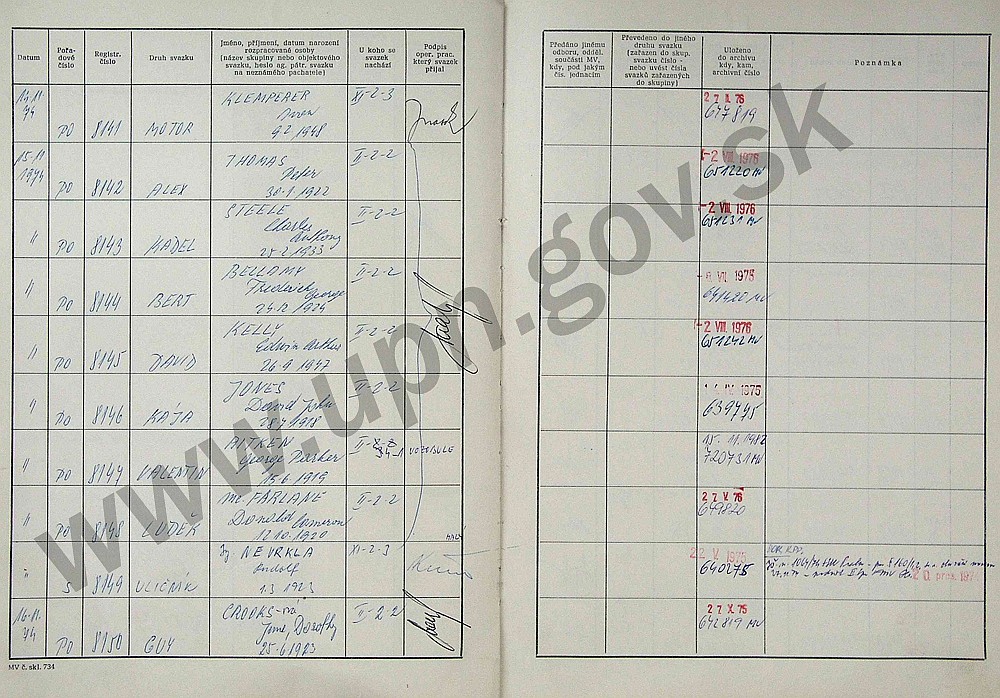 Datum
Pořa-
dové
číslo
Registr.
číslo
Druh svazku
Jméno, příjmení, datum narození
rozpracované osoby
(název skupiny nebo objektového
svazku, heslo ag. pátr. svazku
na neznámého pachatele)
U koho se
svazek
nachází
Podpis
oper. prac.
který svazek
přijal
Předáno jinému
odboru, odděl.
součásti MV,
kdy, pod jakým
čís. jednacím
Převedeno do jiného
druhu svazku
(zařazen do skup.
svazku číslo -
nebo uvést čísla
svazků zařazených
do skupiny)
Uloženo
do archivu
kdy, kam,
archivní číslo
Poznámka
14.11. KLEMPERER XI-2-3
74
PO 8141 MOTOR 9.2.1948
647819
15.11 THOMAS II-2-2 -2 VIII. 1976
1974 Peter 651220 MV
PO 8142 ALEX 30.1.1922
STEELE II-2-2 -2 VIII. 1976
" Charles 651231 MV
Anthony
PO 8143 KADEL 25.2.1933
BELLAMY II-2-2 1975
" Frederick 641420 MV
George
PO 8144 BERT 24.12.1924
KELLY II-2-2 -2 VIII. 1976
" Edwin Arthur 651242 MV
PO 8145 DAVID 26.9.1947
JONES II-2-2 1975
" David John 639775
PO 8146 KÁJA 28.7.1918
AITKEN II- 15.11.1982
" George Parker 34-1 VOZOBULE 720731 MV
PO 8147 VALENTIN 15.6.1919
Mc. FARLANE II-2-2 76
" Donald Cameron 649820
PO 8148 LUDĚK 12.10.1920
Ing. NEVRKLA XI-2-3 22. V. 1975
" Rudolf 640275
S 8149 ULIČNÍK 1.3.1923
16.11. CROOKS-ová II-2-2 27 X. 75
74 Jane, Dorothy 642819 MV
PO 8150 GUY 25.6.1923
MV č. skl. 734
www.upn.gov.sk